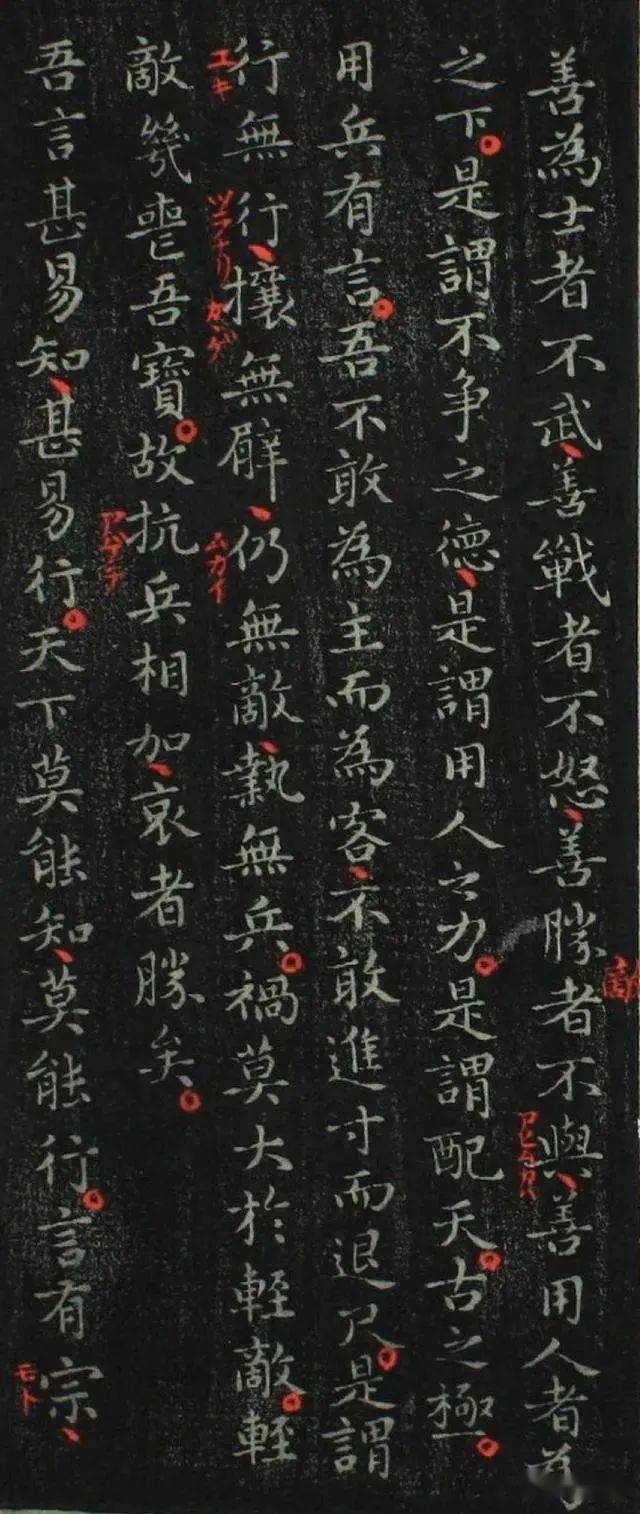 善為士者不武、善戰者不怒、善勝者不與、善用人者為
敵
之下。是謂不争之德、是謂用人之力。是謂配天。古之極。
用兵有言。吾不敢為主而為客、不敢進寸而退尺。是謂
行無行、攘無臂、仍無敵、執無兵。禍莫大於輕敵。輕
ユキ
ムカイ
敵幾喪吾寶。故抗兵相加、哀者勝矣。
吾言甚易知、甚易行。天下莫能知、莫能行。言有宗、
モト